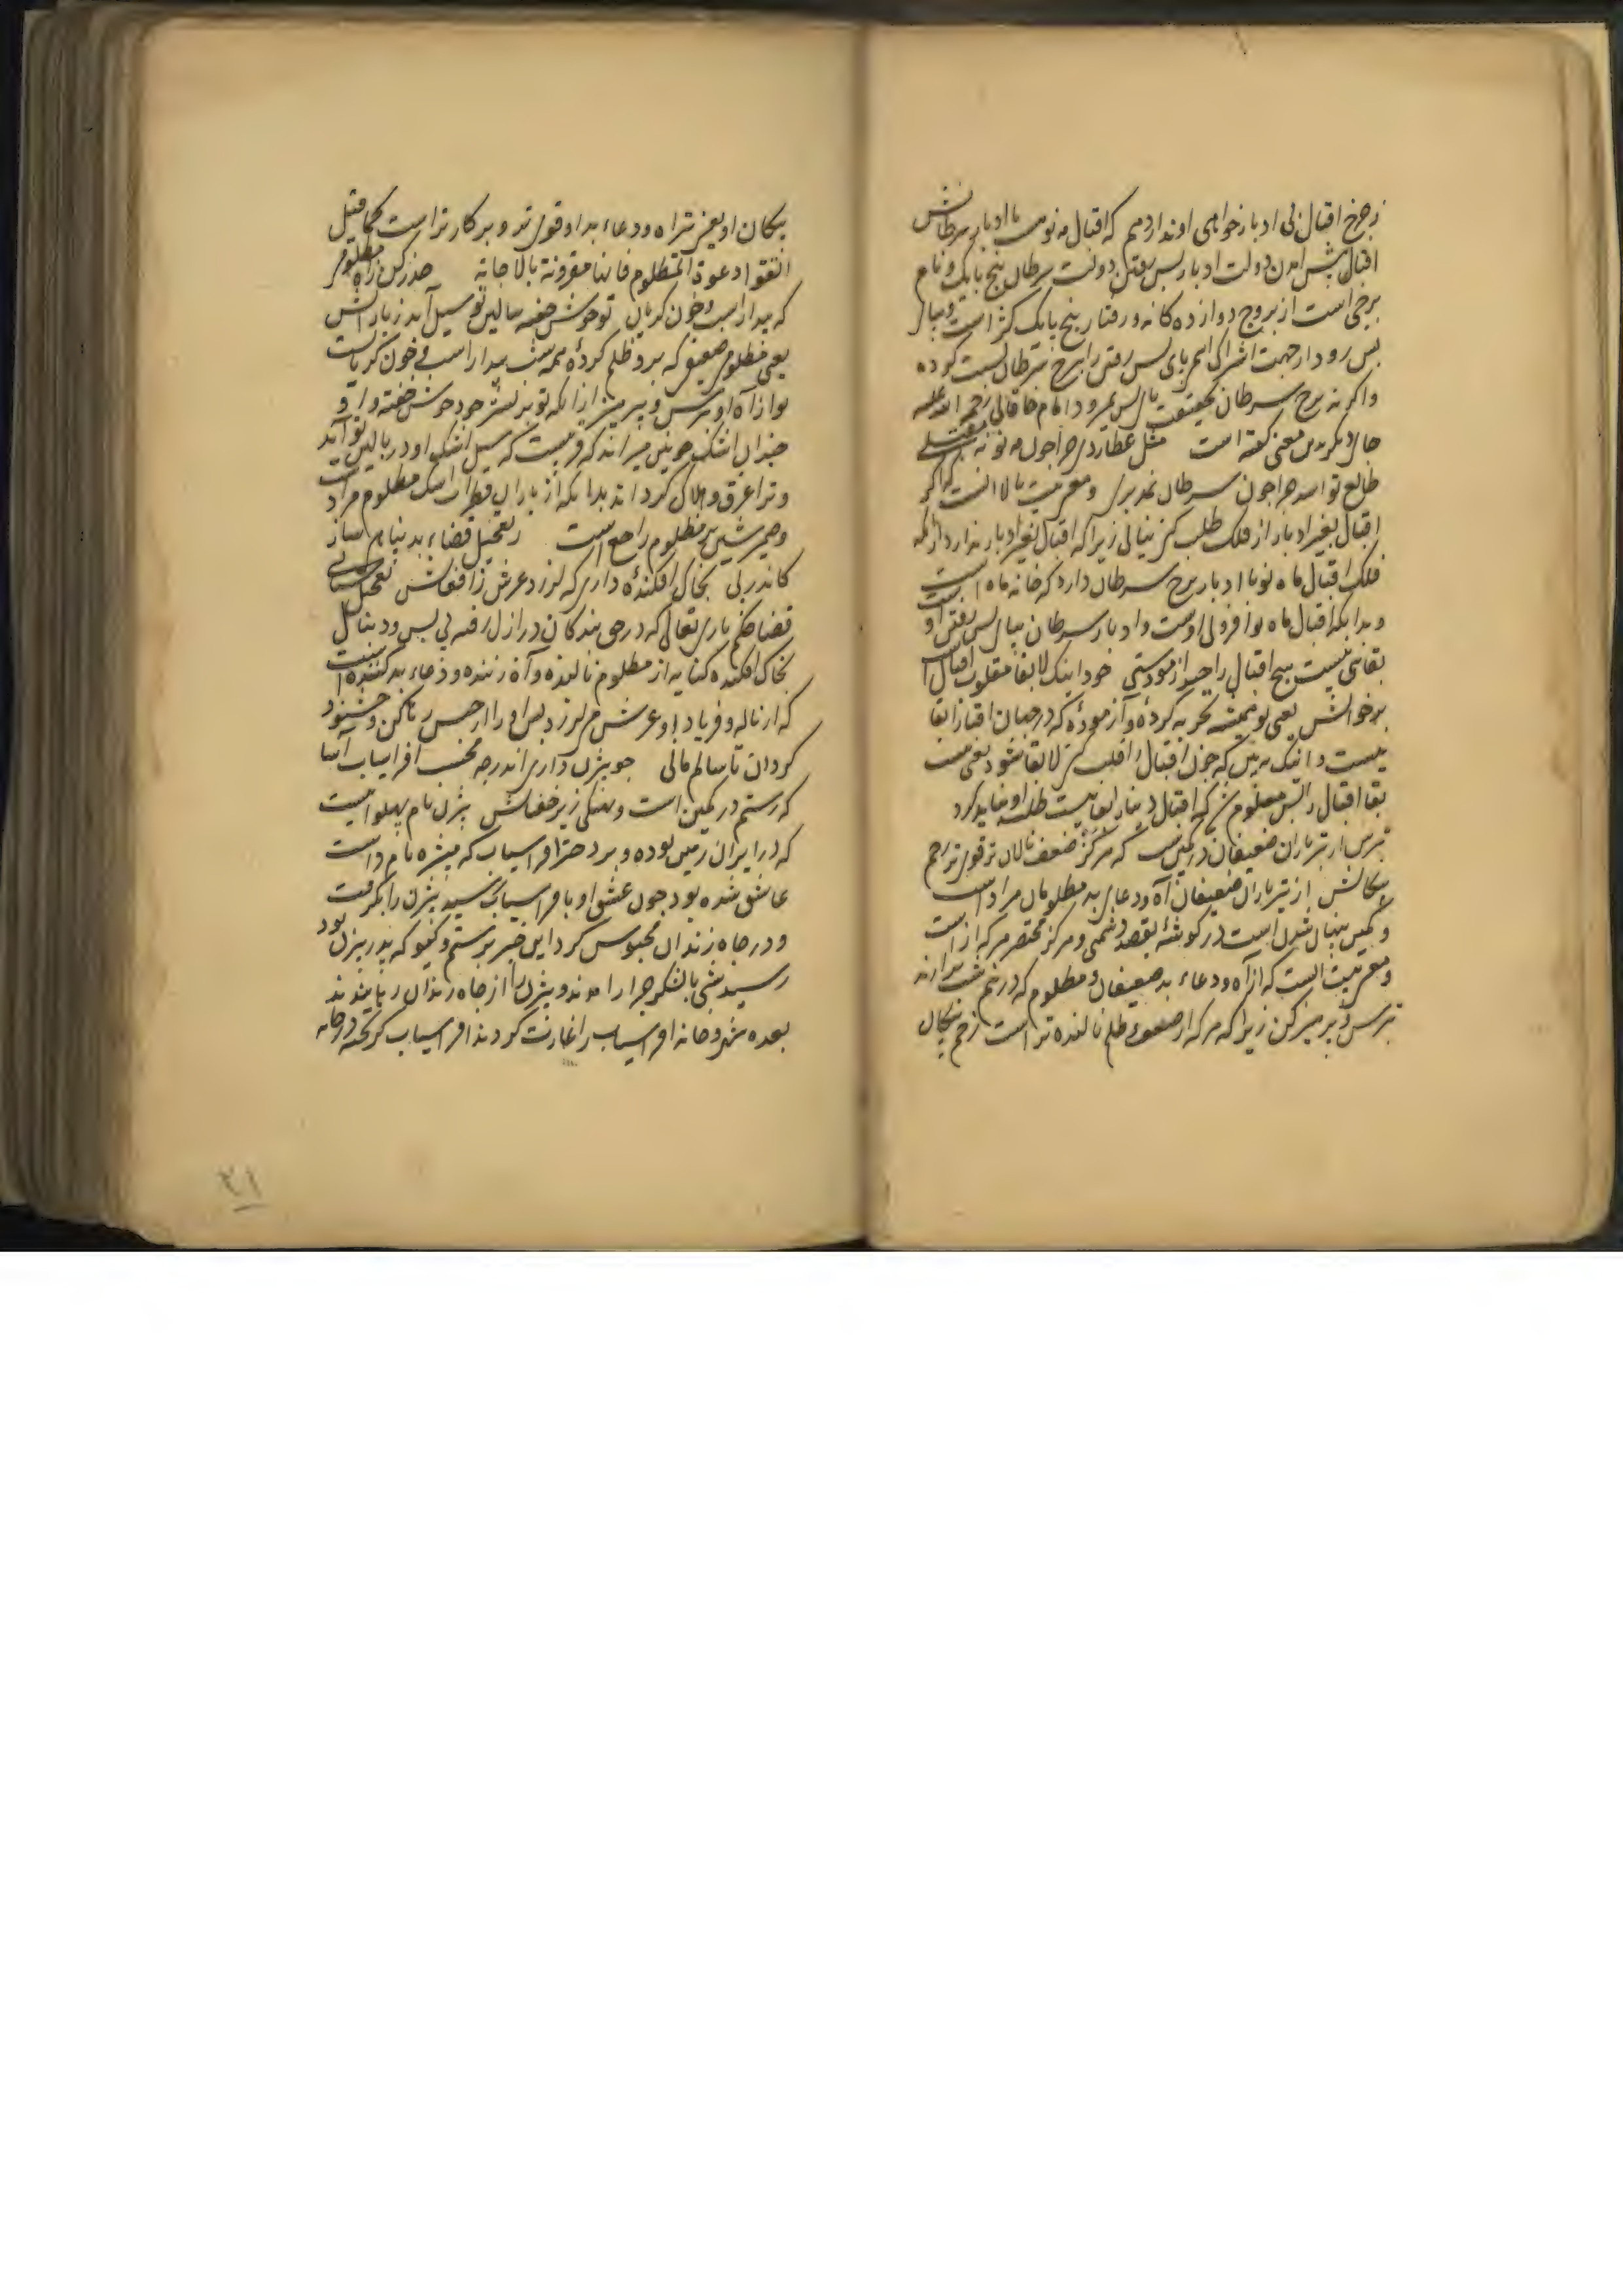 ز چرخ اقبال بی ادبار خواهی او ندارد هم که اقبال مه نو هست با ادبار سرطانش
اقبال پیش آمدن دولت ادبار پس رفتن دولت سرطان پنج پایک و نام
برجی است از بروج دوازده کانه و رفتار پنج پایک کژ است و
پس رود از جهت اشتراک اسم پای پس رفتن را ببرج سرطان نسبت کرده
واکر نه برج سرطان بحقیقت پس نمیرود امام خاقانی رحمة الله علیه
جای دیکر بدین معنی کفته است مثل عطاردی چرا چون مه نو نه مقبلی
طالع تو اسد چرا چون سرطان بمدبری و معنی بیت بالا انست که اکر
اقبال بغیر ادبار از فلک طلب کنی نیابی زیرا که اقبال بغیر ادبار ندارد از انکه
فلک اقبال ماه نو با ادبار برج سرطان دارد که خانه ماه است
و بدانکه اقبال ماه نو افزونی اوست و ادبار سرطان بپای پس رفتن او
بقائی نیست هیچ اقبال را چند ازمودستی خود اینک لابقا مقلوب اقبال
برخوانش یعنی تو همیشه تجربه کردهٔ و آزمودهٔ که در جهان اقبال را بقا
نیست و اینک ببین که چون اقبال را قلب کنی لابقا شود یعنی نیست
بقا اقبال را پس معلوم شد که اقبال دنیا را بقا نیست طلب او نباید کرد
بترس از تیر باران ضعیفان در کمین شب که هر کز ضعف نالان تر قوی تر زخم
پیکانش از تیر باران ضعیفان آه و دعای بد مظلومان مراد است
و کمین پنهان شدن است در کوشهٔ بقصد دشمنی و هر کز مختصر هر که از است
و معنی بیت انست که از آه و دعاء بد ضعیفان و مظلوم که در نیم شب برآرند
بترس و پرهیز کن زیرا که هر که از ضعف و ظلم نالنده تر است زخم پیکان
پیکان او یعنی تیر آه و دعاء بد او قوی تر و بر کار تر است کما قیل
اتقوا دعوة المظلوم فانها مقرونة بالاجابة حذر کن ز آه مظلومی
که بیدار است و خون کریان تو خوش خفته ببالین تو سیل آید ز بارانش
یعنی مظلومی ضعیفی که برو ظلم کردهٔ همه شب بیدار است و خون کریانست
تو از آه او بترس و پرهیز از انکه تو بر بستر خود خوش خفته و او
چندان اشک خونین میراند که قریبست که سیل اشک او در بالین تو آید
و ترا غرق و هلاک کرداند بدانکه از باران قطرات اشک مظلوم مراد است
و ضمیر شین بر مظلوم راجع است ز تعجیل قضاء بد پناهی ساز
کاندر پی بخاک افکندهٔ داری که لرزد عرش ز افغانش تعجیل شتابی
قضا حکم باری تعالی که در حق بندکان در ازل رفته پی پس و دنبال
بخاک افکنده کنایه از مظلوم نالنده و آه زننده و دعاء بد کننده است
که از ناله و فریاد او عرش می لرزد پس او را از خویش راضی کن و خشنود
کردان تا سالم مانی چو بیژن داری اندر چه مخسب افراسیاب آسا
که رستم در کمین است و نهنکی زیر خفتانش بیژن نام پهلوانیست
که در ایران زمین بوده و بر دختر افراسیاب که منیژه نام داشت
عاشق شده بود چون عشق او بافراسیاب رسید بیژن را بکرفت
و در چاه زندان محبوس کرد این خبر برستم و کیو که پدر بیژن بود
رسید شبی با لشکر جرار آمدند و بیژن را از چاه زندان ربانیدند
بعده شهر و خانه افراسیاب را غارت کردند افراسیاب کریخته در خانه
۲۱